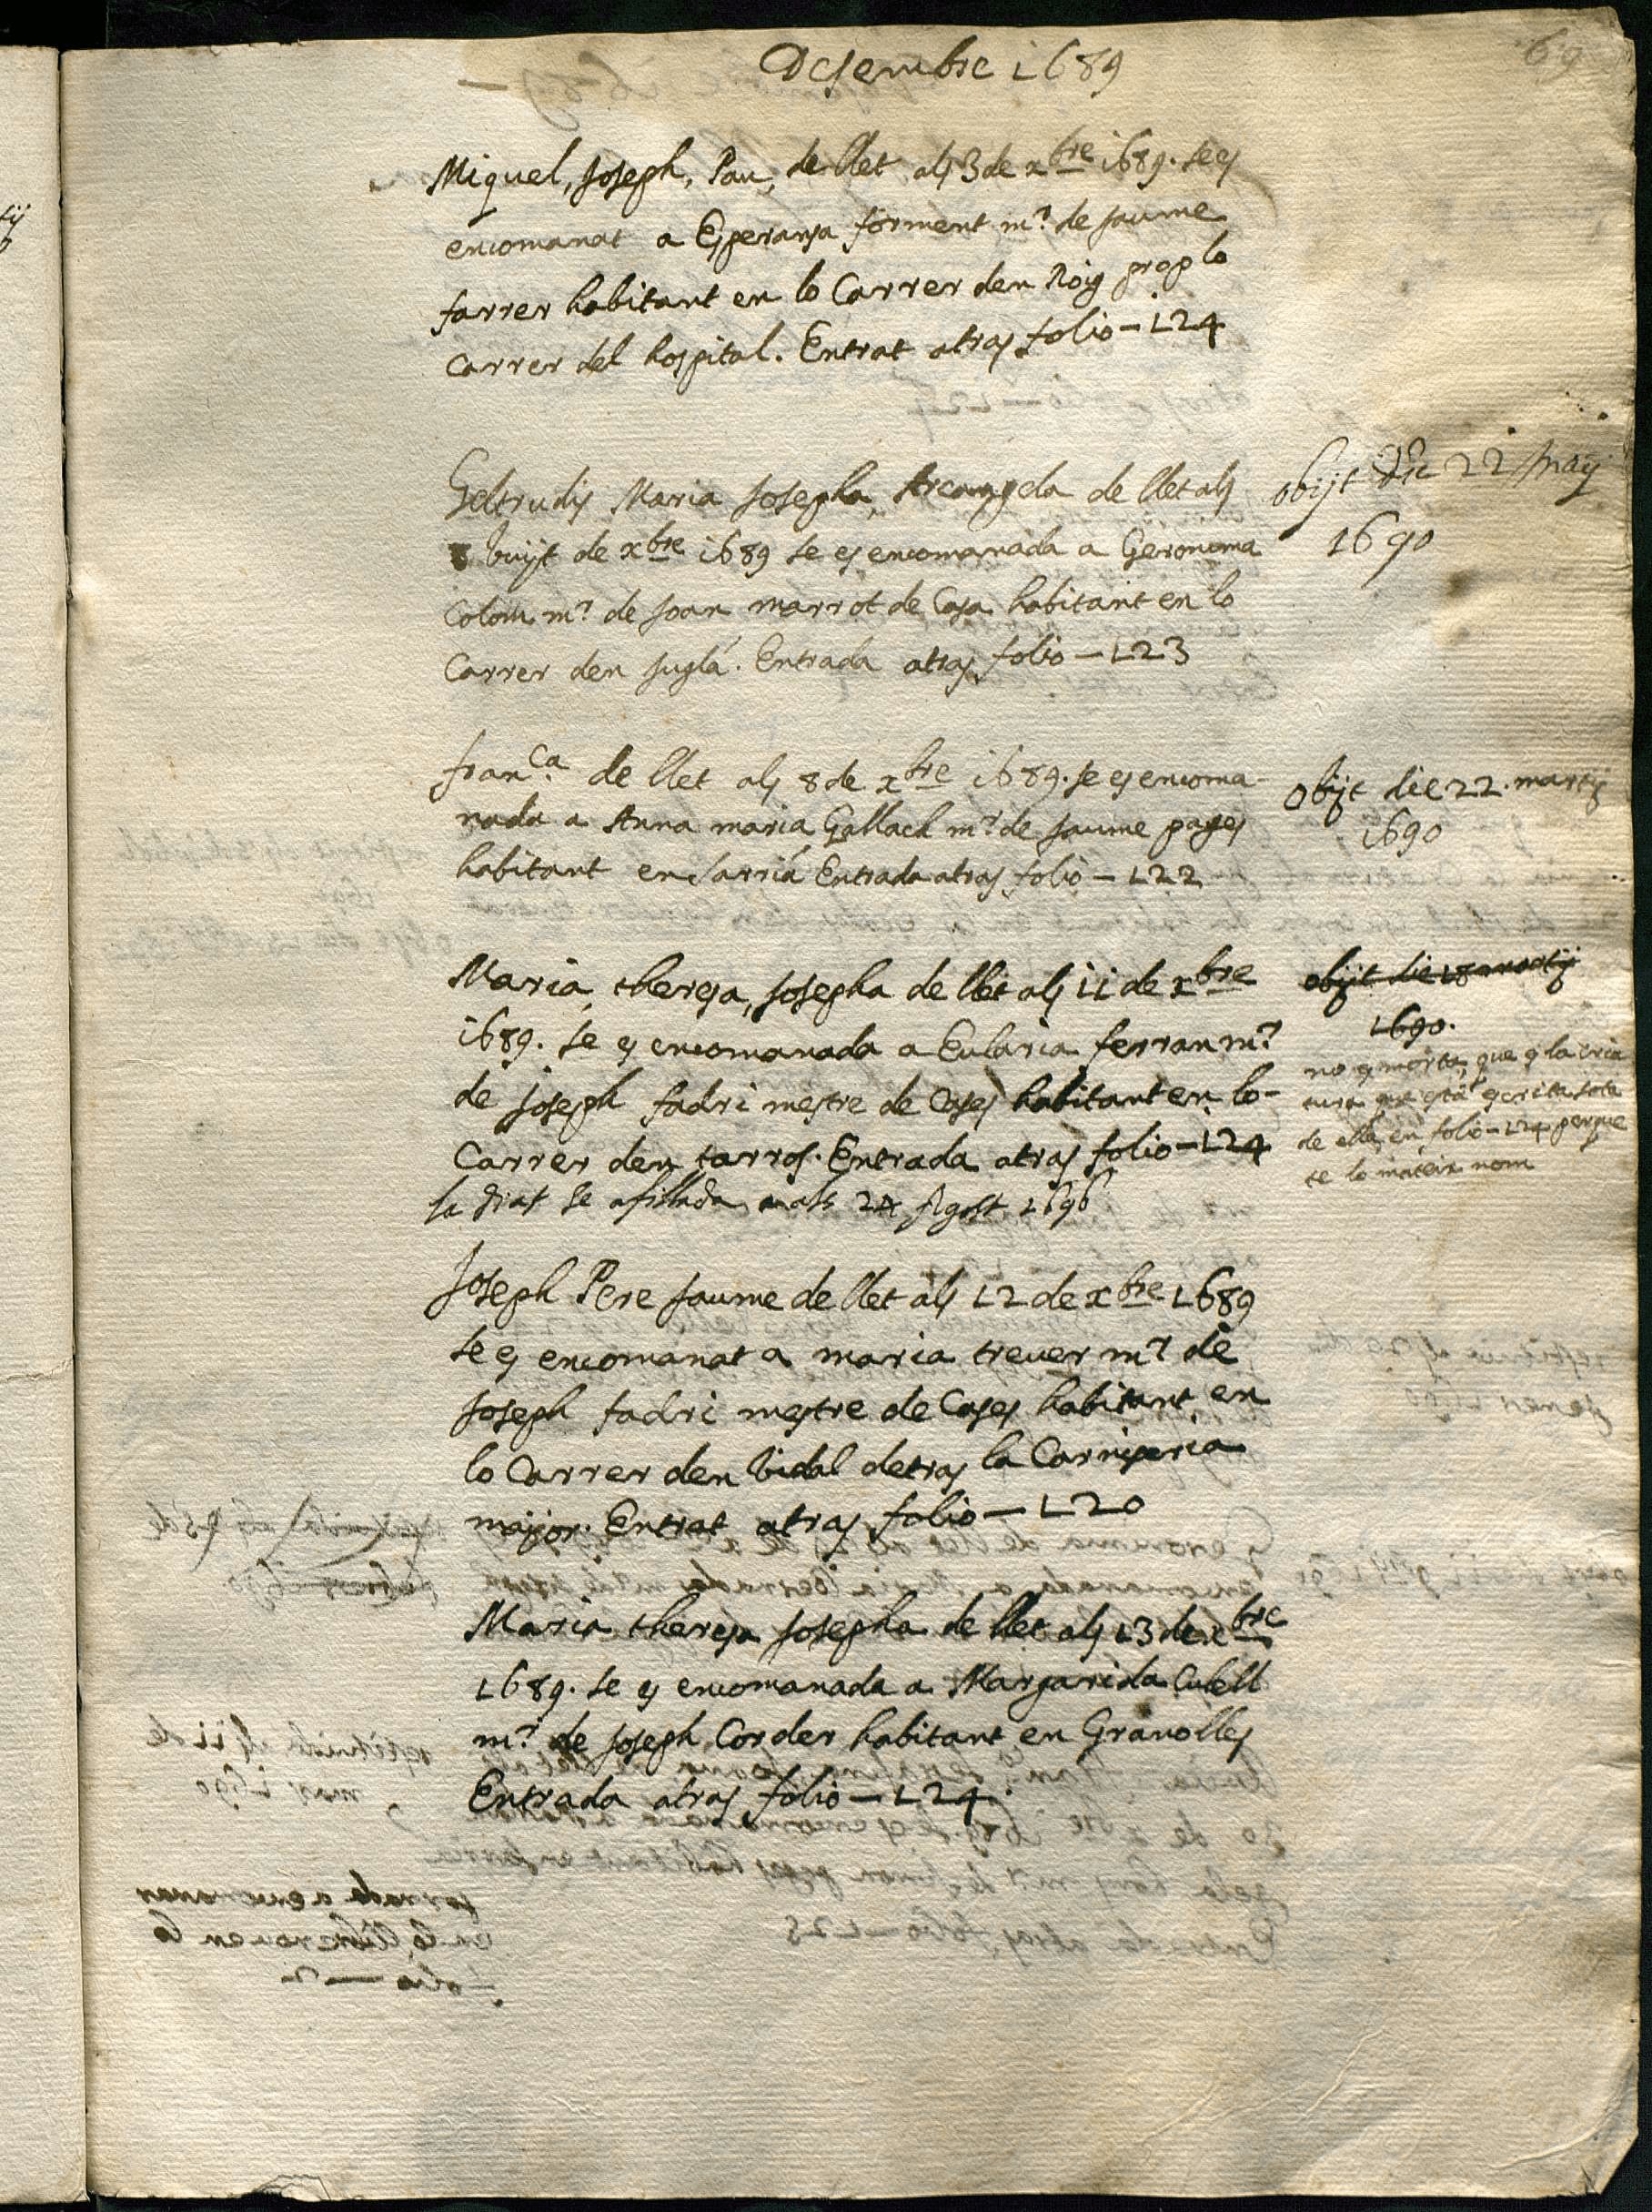 Desembre 1689
69
Miquel, Joseph, Pau, de llet als 3 de xbre 1689. se es
encomanat a Esperansa forment mr. de Jaume
farrer habitant en lo Carrer den Roig prop lo
Carrer del hospital. Entrat atras folio - 124
Geltrudis Maria Josepha, Arcangela de llet als
vuijt de xbre 1689 se es encomanada a Geronima
Colom mr. de Joan marrot de Casa habitant en lo
Carrer den Juglá. Entrada atras folio - 123
obijt die 22 maij
1690
franca. de llet als 8 de xbre 1689. se es encoma-
nada a Anna maria Gallach mr. de Jaume pages
habitant en Sarriá Entrada atras folio - 122
Obijt die 22. martij
1690
Maria, theresa, Josepha de llet als 11 de xbre
1689. se es encomanada a Eularia ferran mr.
de Joseph fadri mestre de Cases habitant en lo-
Carrer den tarros. Entrada atras folio - 124
la dias se afillada als 24 Agost 1696
obijt die 18 martij
1690.
no es morta, que es la cria
tura que está escrita sota
de ella en folio - 124 perque
te lo mateix nom
Joseph Pere Jaume de llet als 12 de xbre 1689
se es encomanat a maria trever mr. de
Joseph fadri mestre de Cases habitant en
lo Carrer den Vidal detras la Carniseria
major. Entrat atras folio - 120
Maria theresa Josepha de llet als 13 de xbre
1689. se es encomanada a Margarida Cubell
mr. de Joseph Corder habitant en Granolles
Entrada atras folio - 124.